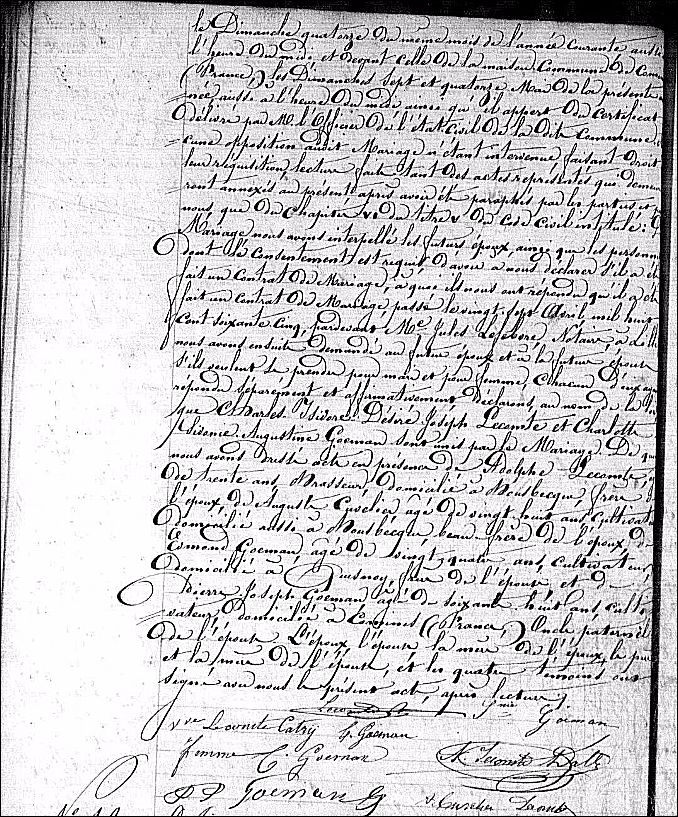 le Dimanche quatorze du même mois de l'année courante aussi à
l'heure de midi et devant celle de la maison Commune de
(France) les Dimanches sept et quatorze Mai de la présente
née aussi à l'heure de midi ainsi qu'il appert du certificat
délivré par M. l'Officier de l'état civil de la dite Commune,
cune opposition audit Mariage n'étant intervenue, faisant droit
leur réquisition, lecture faite tant des actes représentés qui demeu
ront annexés au présent après avoir été paraphés par les parties et
nous, que du Chapitre VI du titre V du Code Civil intitulé:
Mariage nous avons interpellé les futurs époux, ainsi que les personn
dont le consentement est requis d'avoir à nous déclarer s'il a été
fait un Contrat de Mariage, à quoi ils nous ont répondu qu'il a été
fait un Contrat de Mariage, passé le vingt-sept Avril mil huit
cent soixante cinq, pardevant Me Jules Lefebvre, Notaire, à
nous avons ensuite demandé au futur époux et à la future épouse
s'ils veulent se prendre pour mari et pour femme, chacun d'eux ay
répondu séparément et affirmativement déclarons, au nom de la
que Charles Isidore Désiré Joseph Lecomte et Charlotte
Sidonie Augustine Goeman sont unis par le Mariage. De quoi
nous avons dressé acte en présence de Adolphe Lecomte, âgé
de trente ans, Brasseur, domicilié à Housbecque, frère de
l'époux, de Auguste Cuvelier, âgé de vingt huit ans, Cultivat
domicilié aussi à Housbecque, beau-frère de l'époux, de
Edmond Goeman, âgé de vingt quatre ans, cultivateur
domicilié à Quesnoy, frère de l'épouse, et de
Pierre Joseph Goeman âgé de soixante huit ans, culti
vateur, domicilié à Commes (France), Oncle paternel
de l'épouse. L'époux, l'épouse, la mère de l'époux, le père
et la mère de l'épouse, et les quatre témoins ont
signé avec nous le présent acte, après lecture.
Lecomte Goeman
Vve Lecomte Catry Goeman
femme C. Goeman A. Lecomte
P J Goeman A. Cuvelier Lecomte